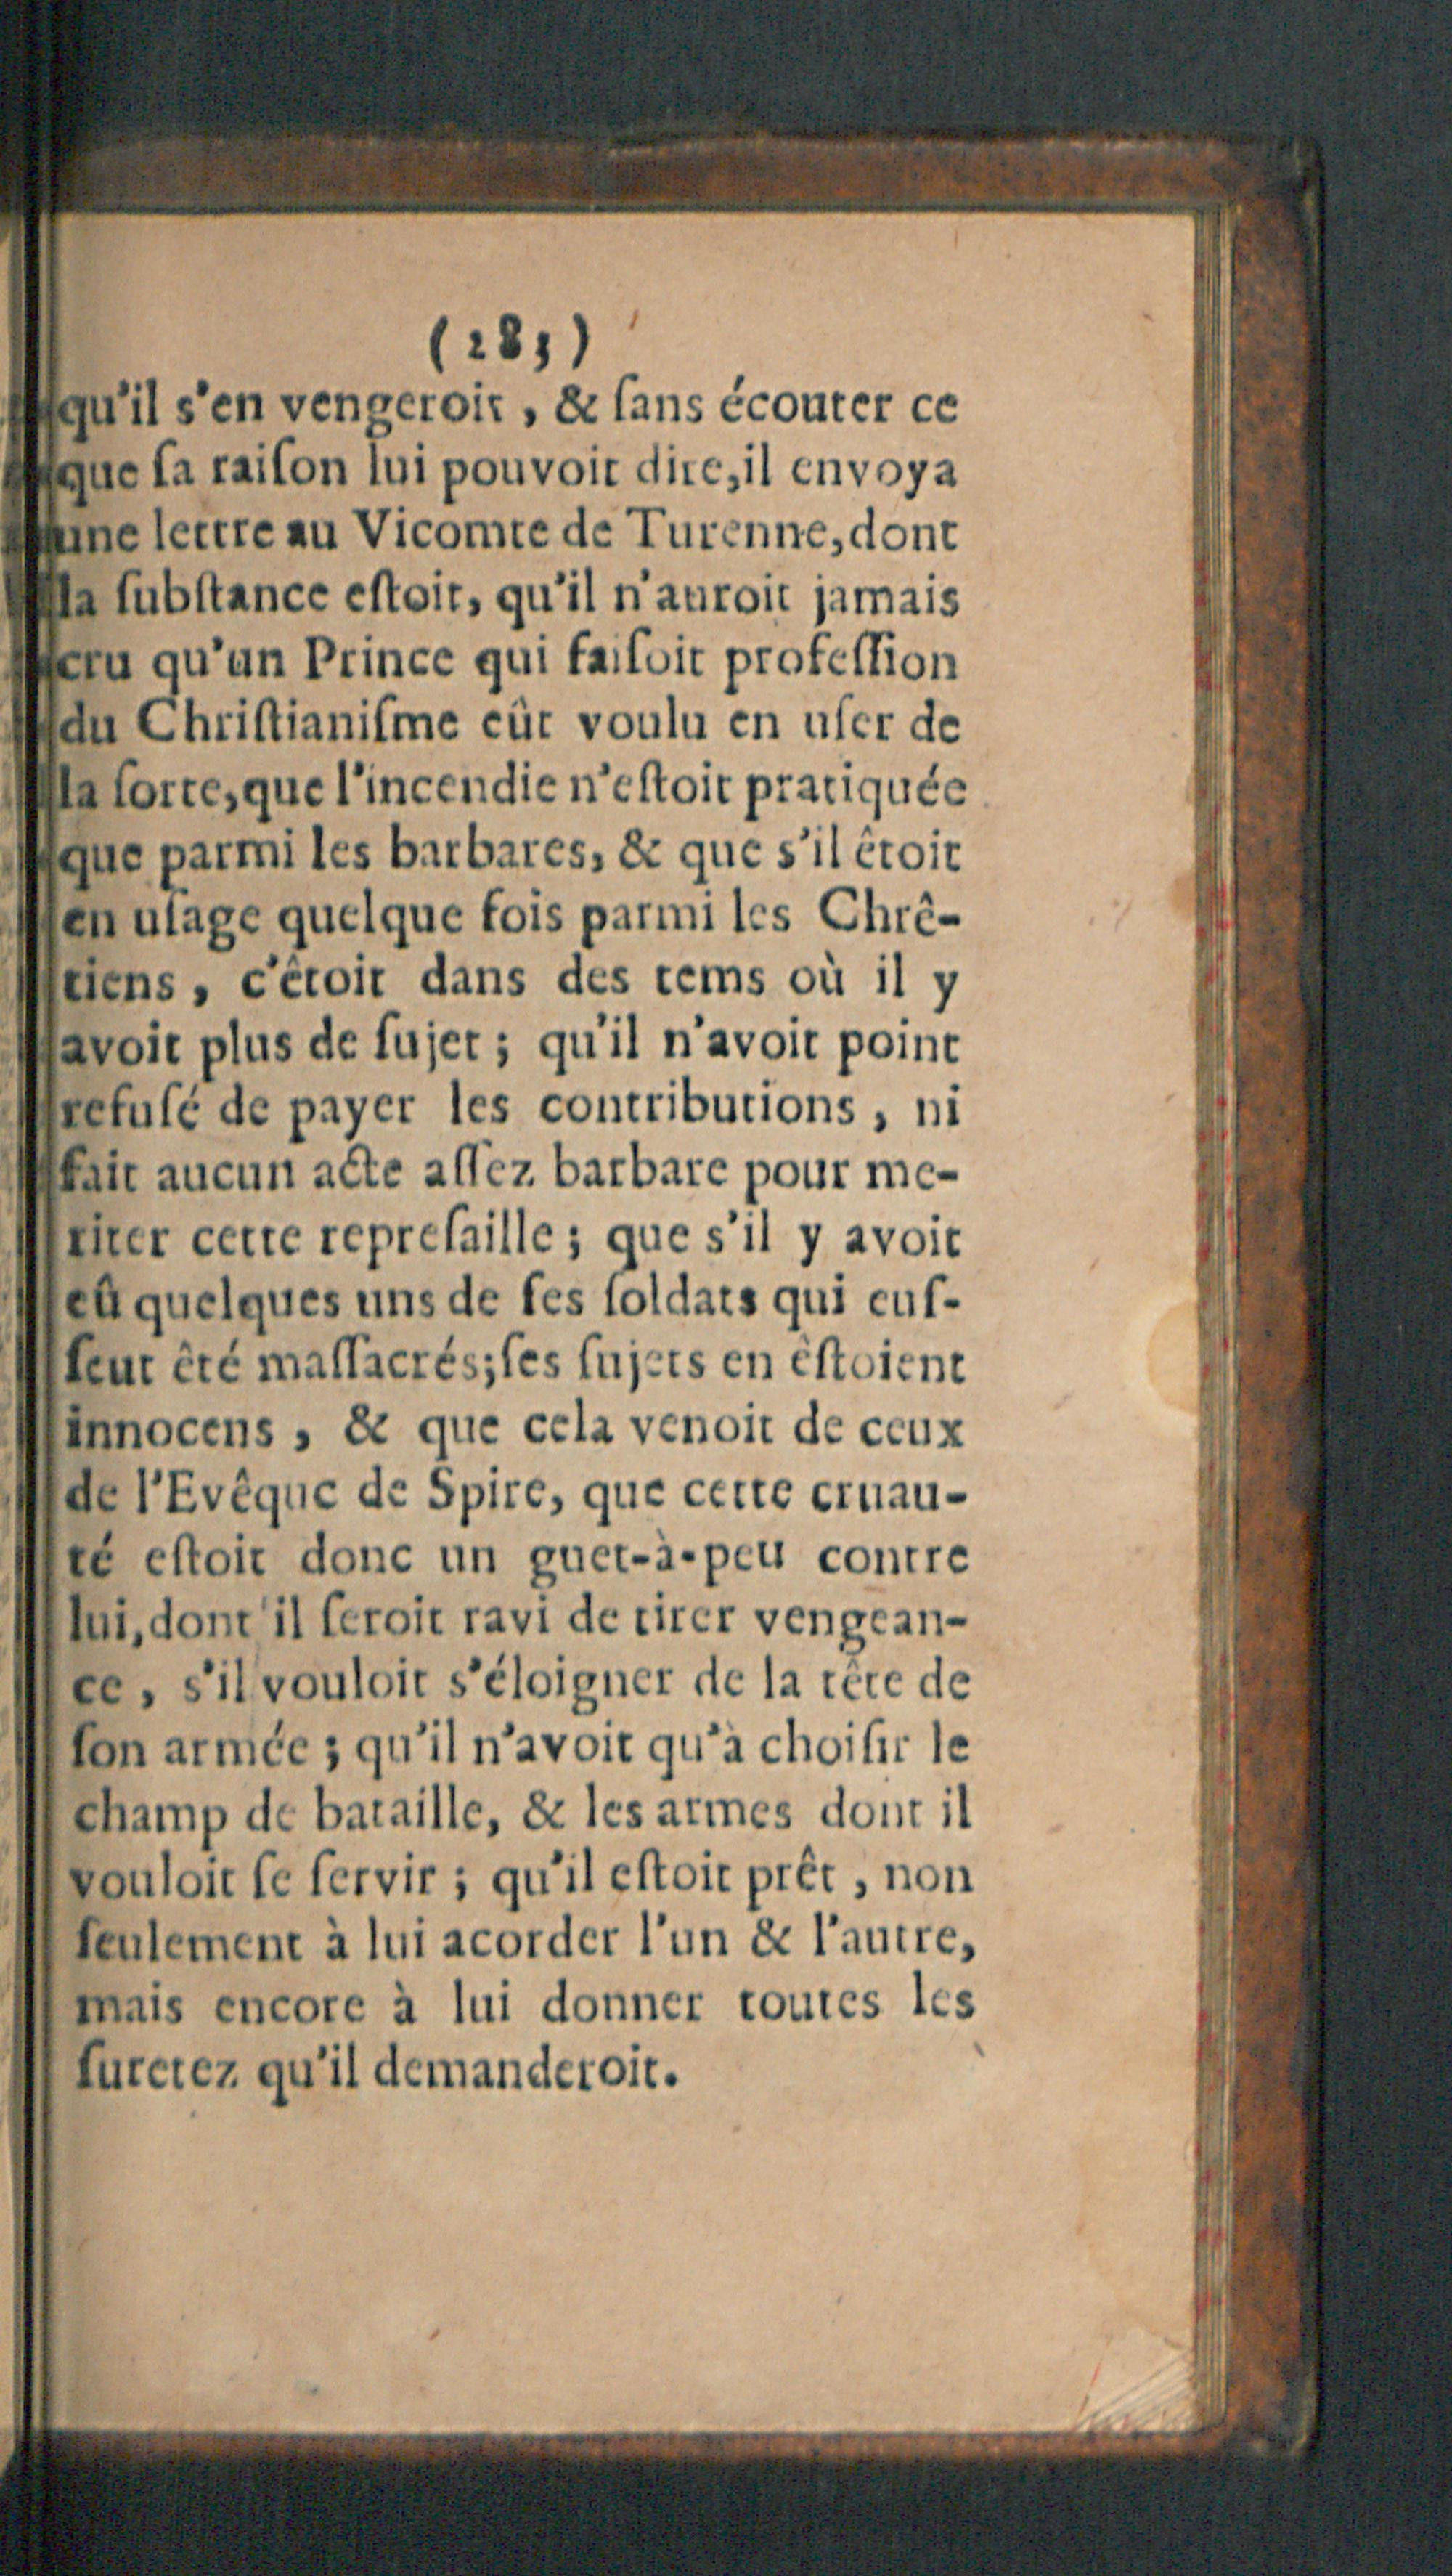 (285)
qu'il s'en vengeroit, & ſans écouter ce
que ſa raiſon lui pouvoit dire, il envoya
une lettre au Vicomte de Turenne, dont
la ſubſtance eſtoit, qu'il n'auroit jamais
cru qu'un Prince qui faiſoit profeſſion
du Chriſtianiſme eût voulu en uſer de
la ſorte, que l'incendie n'eſtoit pratiquée
que parmi les barbares, & que s'il êtoit
en uſage quelque fois parmi les Chrê-
tiens, c'êtoit dans des tems où il y
avoit plus de ſujet; qu'il n'avoit point
refuſé de payer les contributions, ni
fait aucun acte aſſez barbare pour me-
riter cette repreſaille; que s'il y avoit
eû quelques uns de ſes ſoldats qui euſ-
ſeut êté maſſacrés; ſes ſujets en êſtoient
innocens, & que cela venoit de ceux
de l'Evêque de Spire, que cette cruau-
té eſtoit donc un guet-à-peu contre
lui, dont il ſeroit ravi de tirer vengean-
ce, s'il vouloit s'éloigner de la tête de
ſon armée; qu'il n'avoit qu'à choiſir le
champ de bataille, & les armes dont il
vouloit ſe ſervir; qu'il eſtoit prêt, non
ſeulement à lui acorder l'un & l'autre,
mais encore à lui donner toutes les
ſuretez qu'il demanderoit.